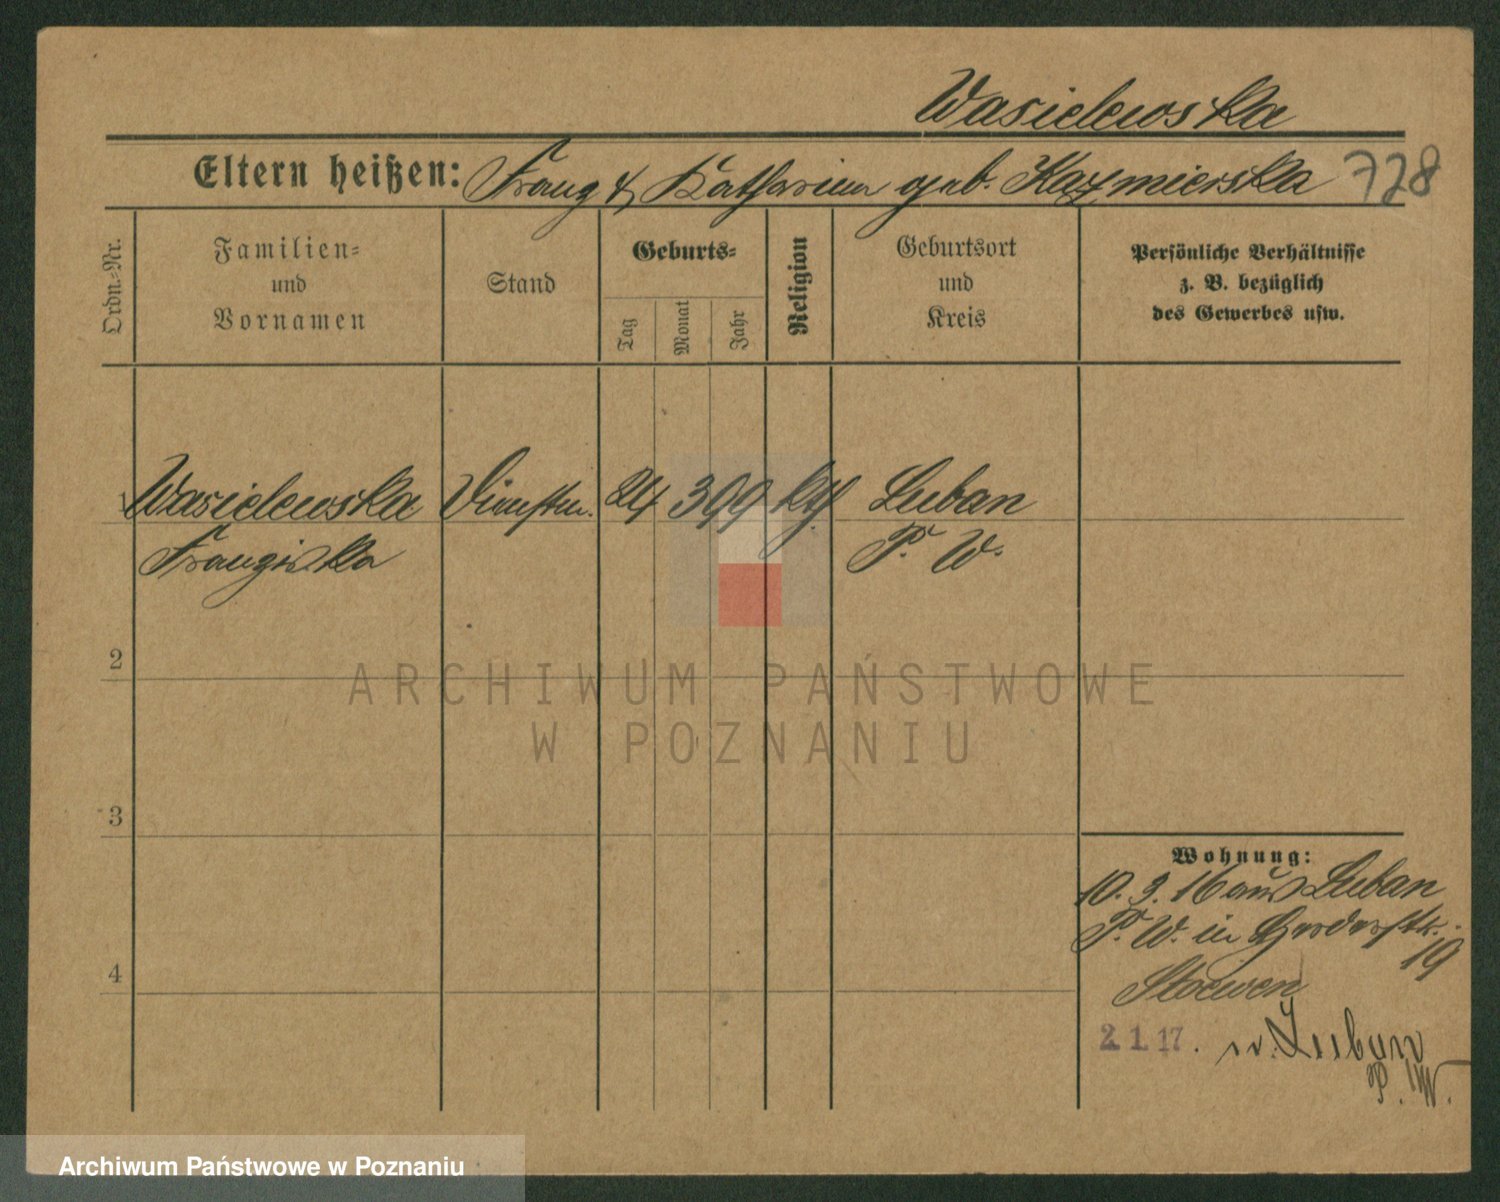 Wasielewska
Eltern heißen: Franz & Katharina geb. Kazmierska 728
Ordn.-Nr.
Familien- und Vornamen
Stand
Geburts-
Tag
Monat
Jahr
Religion
Geburtsort und Kreis
Persönliche Verhältnisse
z. B. bezüglich
des Gewerbes usw.
1 Wasielewska Dienstm. 24 3 99 kth Luban
Franziska P. W.
2
ARCHIWUM PAŃSTWOWE
W POZNANIU
3
Wohnung:
10. 3. 16 aus Luban
P. W. in Herderstr. 19
4
Stoewen
2 1. 17. n. Luban
P. W.
Archiwum Państwowe w Poznaniu